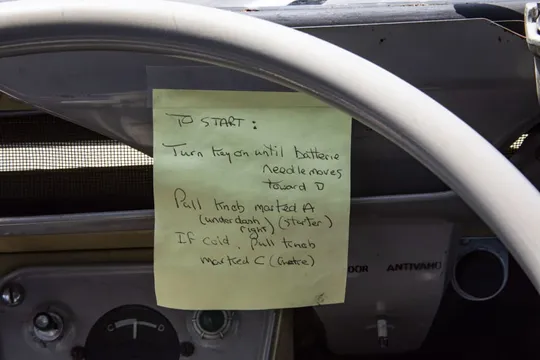 TO START:
Turn key on until batterie
needle moves
toward D
Pull knob marked A
(under dash) (starter)
right)
If cold, Pull knob
marked C (choke)
DOOR ANTIVAHO